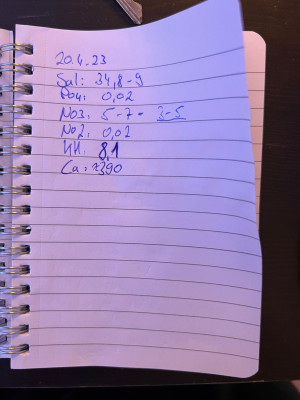 20.4.23
Sal: 34,8-9
Po4: 0,02
No3: 5-7- 3-5
No2: 0,02
KH: 8,1
Ca: ≈390